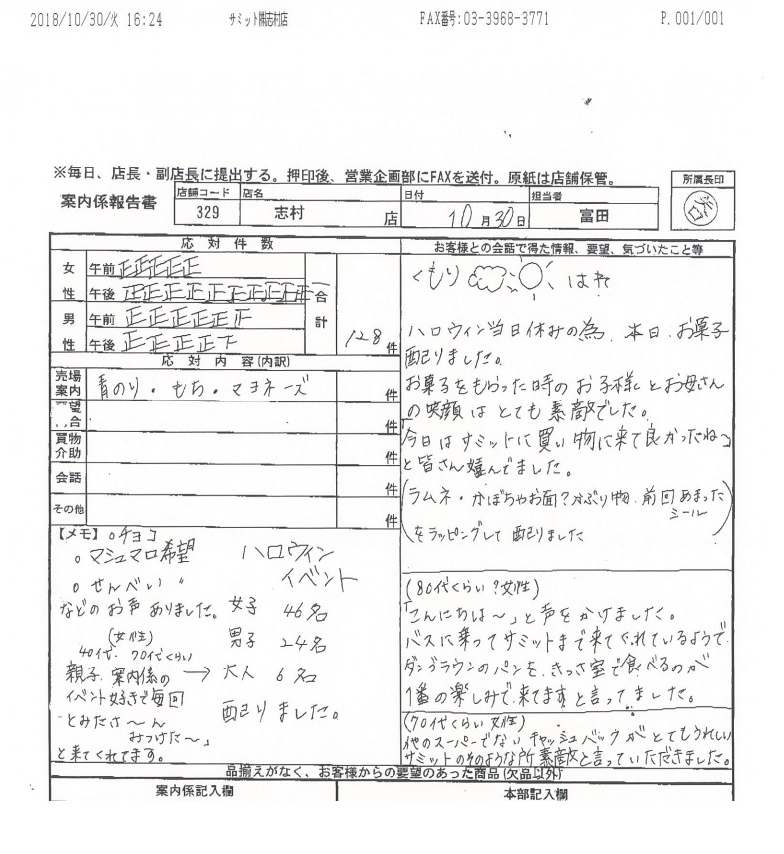 2018/10/30/火 16:24 サミット㈱志村店 FAX番号:03-3968-3771 P.001/001
※毎日、店長・副店長に提出する。押印後、営業企画部にFAXを送付。原紙は店舗保管。
所属長印
案内係報告書
店舗コード 店名 日付 担当者
329 志村 店 10月30日 富田
応対件数
女性 午前 正正正正正
午後 正正正正正正正正正
男性 午前 正正正正正
午後 正正正正
合計 128件
応対内容(内訳)
売場案内 青のり・もち・マヨネーズ 件
望 合 件
買物介助 件
会話 件
その他 件
【メモ】 ○チョコ
○マシュマロ希望
○せんべい 〃
などのお声ありました。
(女性)
40代、70代くらい
親子、案内係の
イベント好きで毎回
「とみたさ〜ん
みつけた〜」
と来てくれてます。
ハロウィン
イベント
女子 46名
男子 24名
→ 大人 6名
配りました。
お客様との会話で得た情報、要望、気づいたこと等
くもり はれ
ハロウィン当日休みの為、本日、お菓子
配りました。
お菓子をもらった時のお子様とお母さん
の笑顔はとても素敵でした。
「今日はサミットに買い物に来て良かったね〜」
と皆さん嬉んでました。
(ラムネ・かぼちゃお面?かぶり物、前回あまった
シール)
をラッピングして配りました
(80代くらい?女性)
「こんにちは〜」と声をかけました。
バスに乗ってサミットまで来てくれているようで、
ダンブラウンのパンを、きっさ室で食べるのが
1番の楽しみで、来てますと言ってました。
(70代くらい女性)
他のスーパーでないキャッシュバックがとてもうれしい
サミットのそのような所素敵と言っていただきました。
品揃えがなく、お客様からの要望のあった商品(欠品以外)
案内係記入欄 本部記入欄